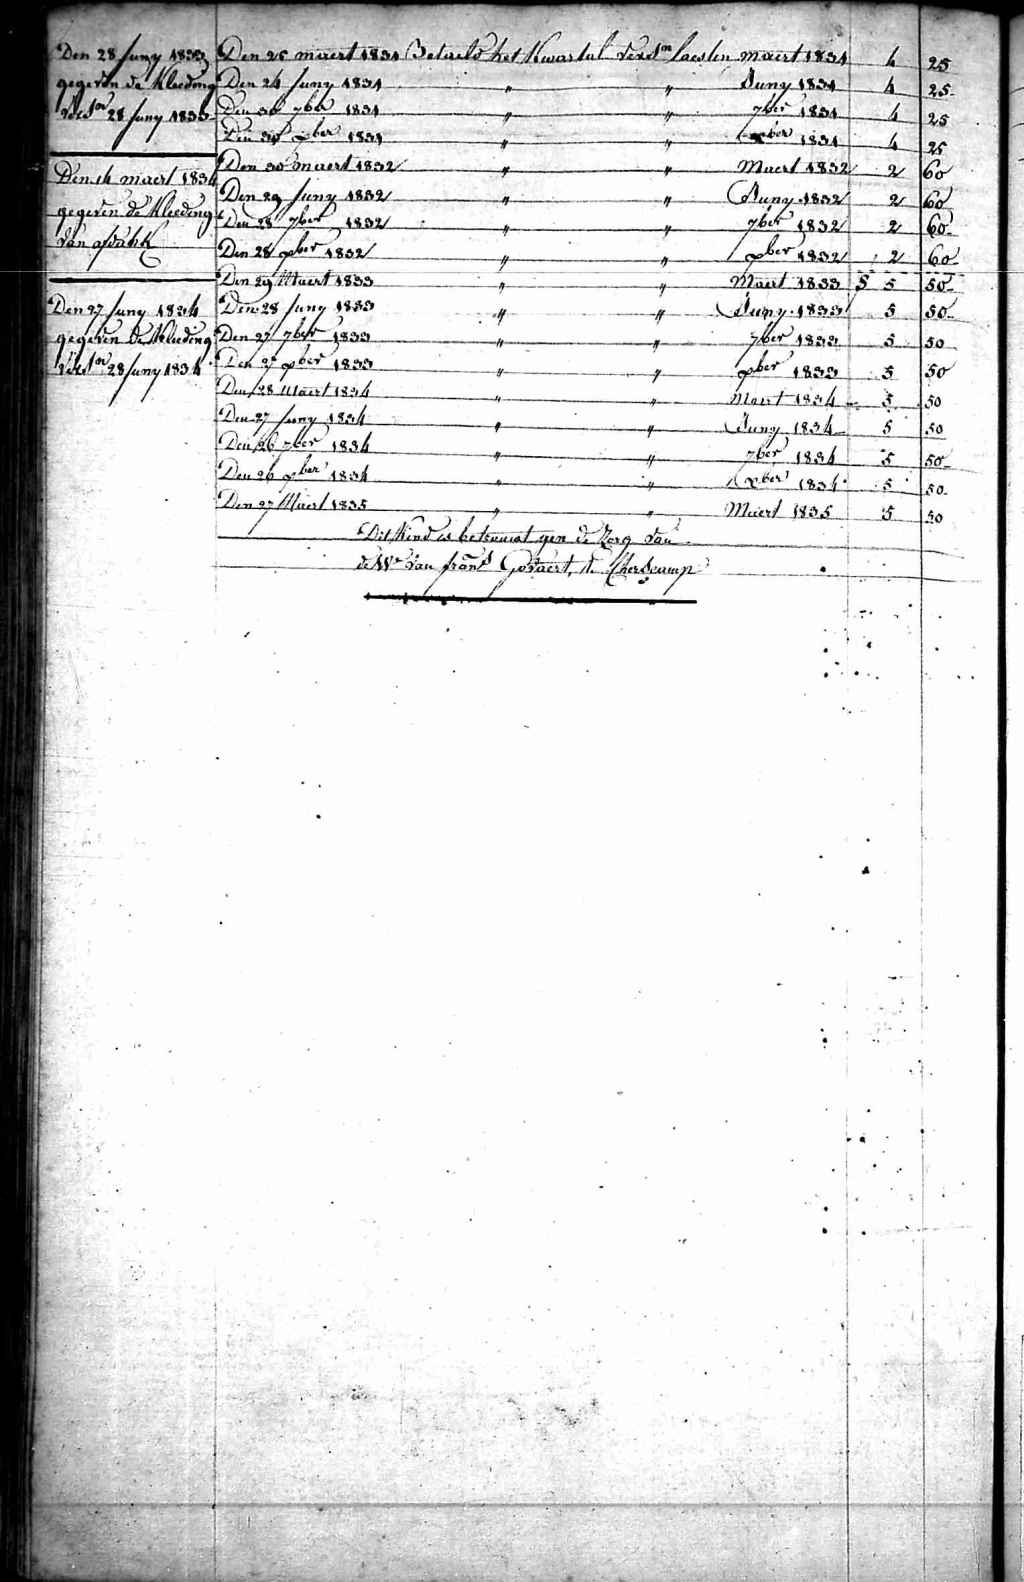 Den 28 Juny 1833
gegeven de Kleeding
28 Juny 1833
Den 14 maert 1834
gegeven de Kleeding
van
Den 27 Juny 1834
gegeven de Kleeding
28 Juny 1834
Den 25 maert 1831 Betaeld het Kwartael laesten maert 1831 4 25
Den 24 Juny 1831 " " Juny 1831 4 25
Den 30 7ber 1831 " " 7ber 1831 4 25
Den 30 xber 1831 " " xber 1831 4 25
Den 30 maert 1832 " " Maert 1832 2 60
Den 29 Juny 1832 " " Juny 1832 2 60
Den 28 7ber 1832 " " 7ber 1832 2 60
Den 28 xber 1832 " " xber 1832 2 60
Den 29 Maert 1833 " " Maert 1833 5 5 50
Den 28 Juny 1833 " " Juny 1833 5 50
Den 27 7ber 1833 " " 7ber 1833 5 50
Den 27 xber 1833 " " xber 1833 5 50
Den 28 Maert 1834 " " Maert 1834 5 50
Den 27 Juny 1834 " " Juny 1834 5 50
Den 26 7ber 1834 " " 7ber 1834 5 50
Den 26 xber 1834 " " xber 1834 5 50
Den 27 Maert 1835 " " Maert 1835 5 50
Dit Kind is betrouwt aen de Zorg van
de We van frans Govaert, te Cherscamp